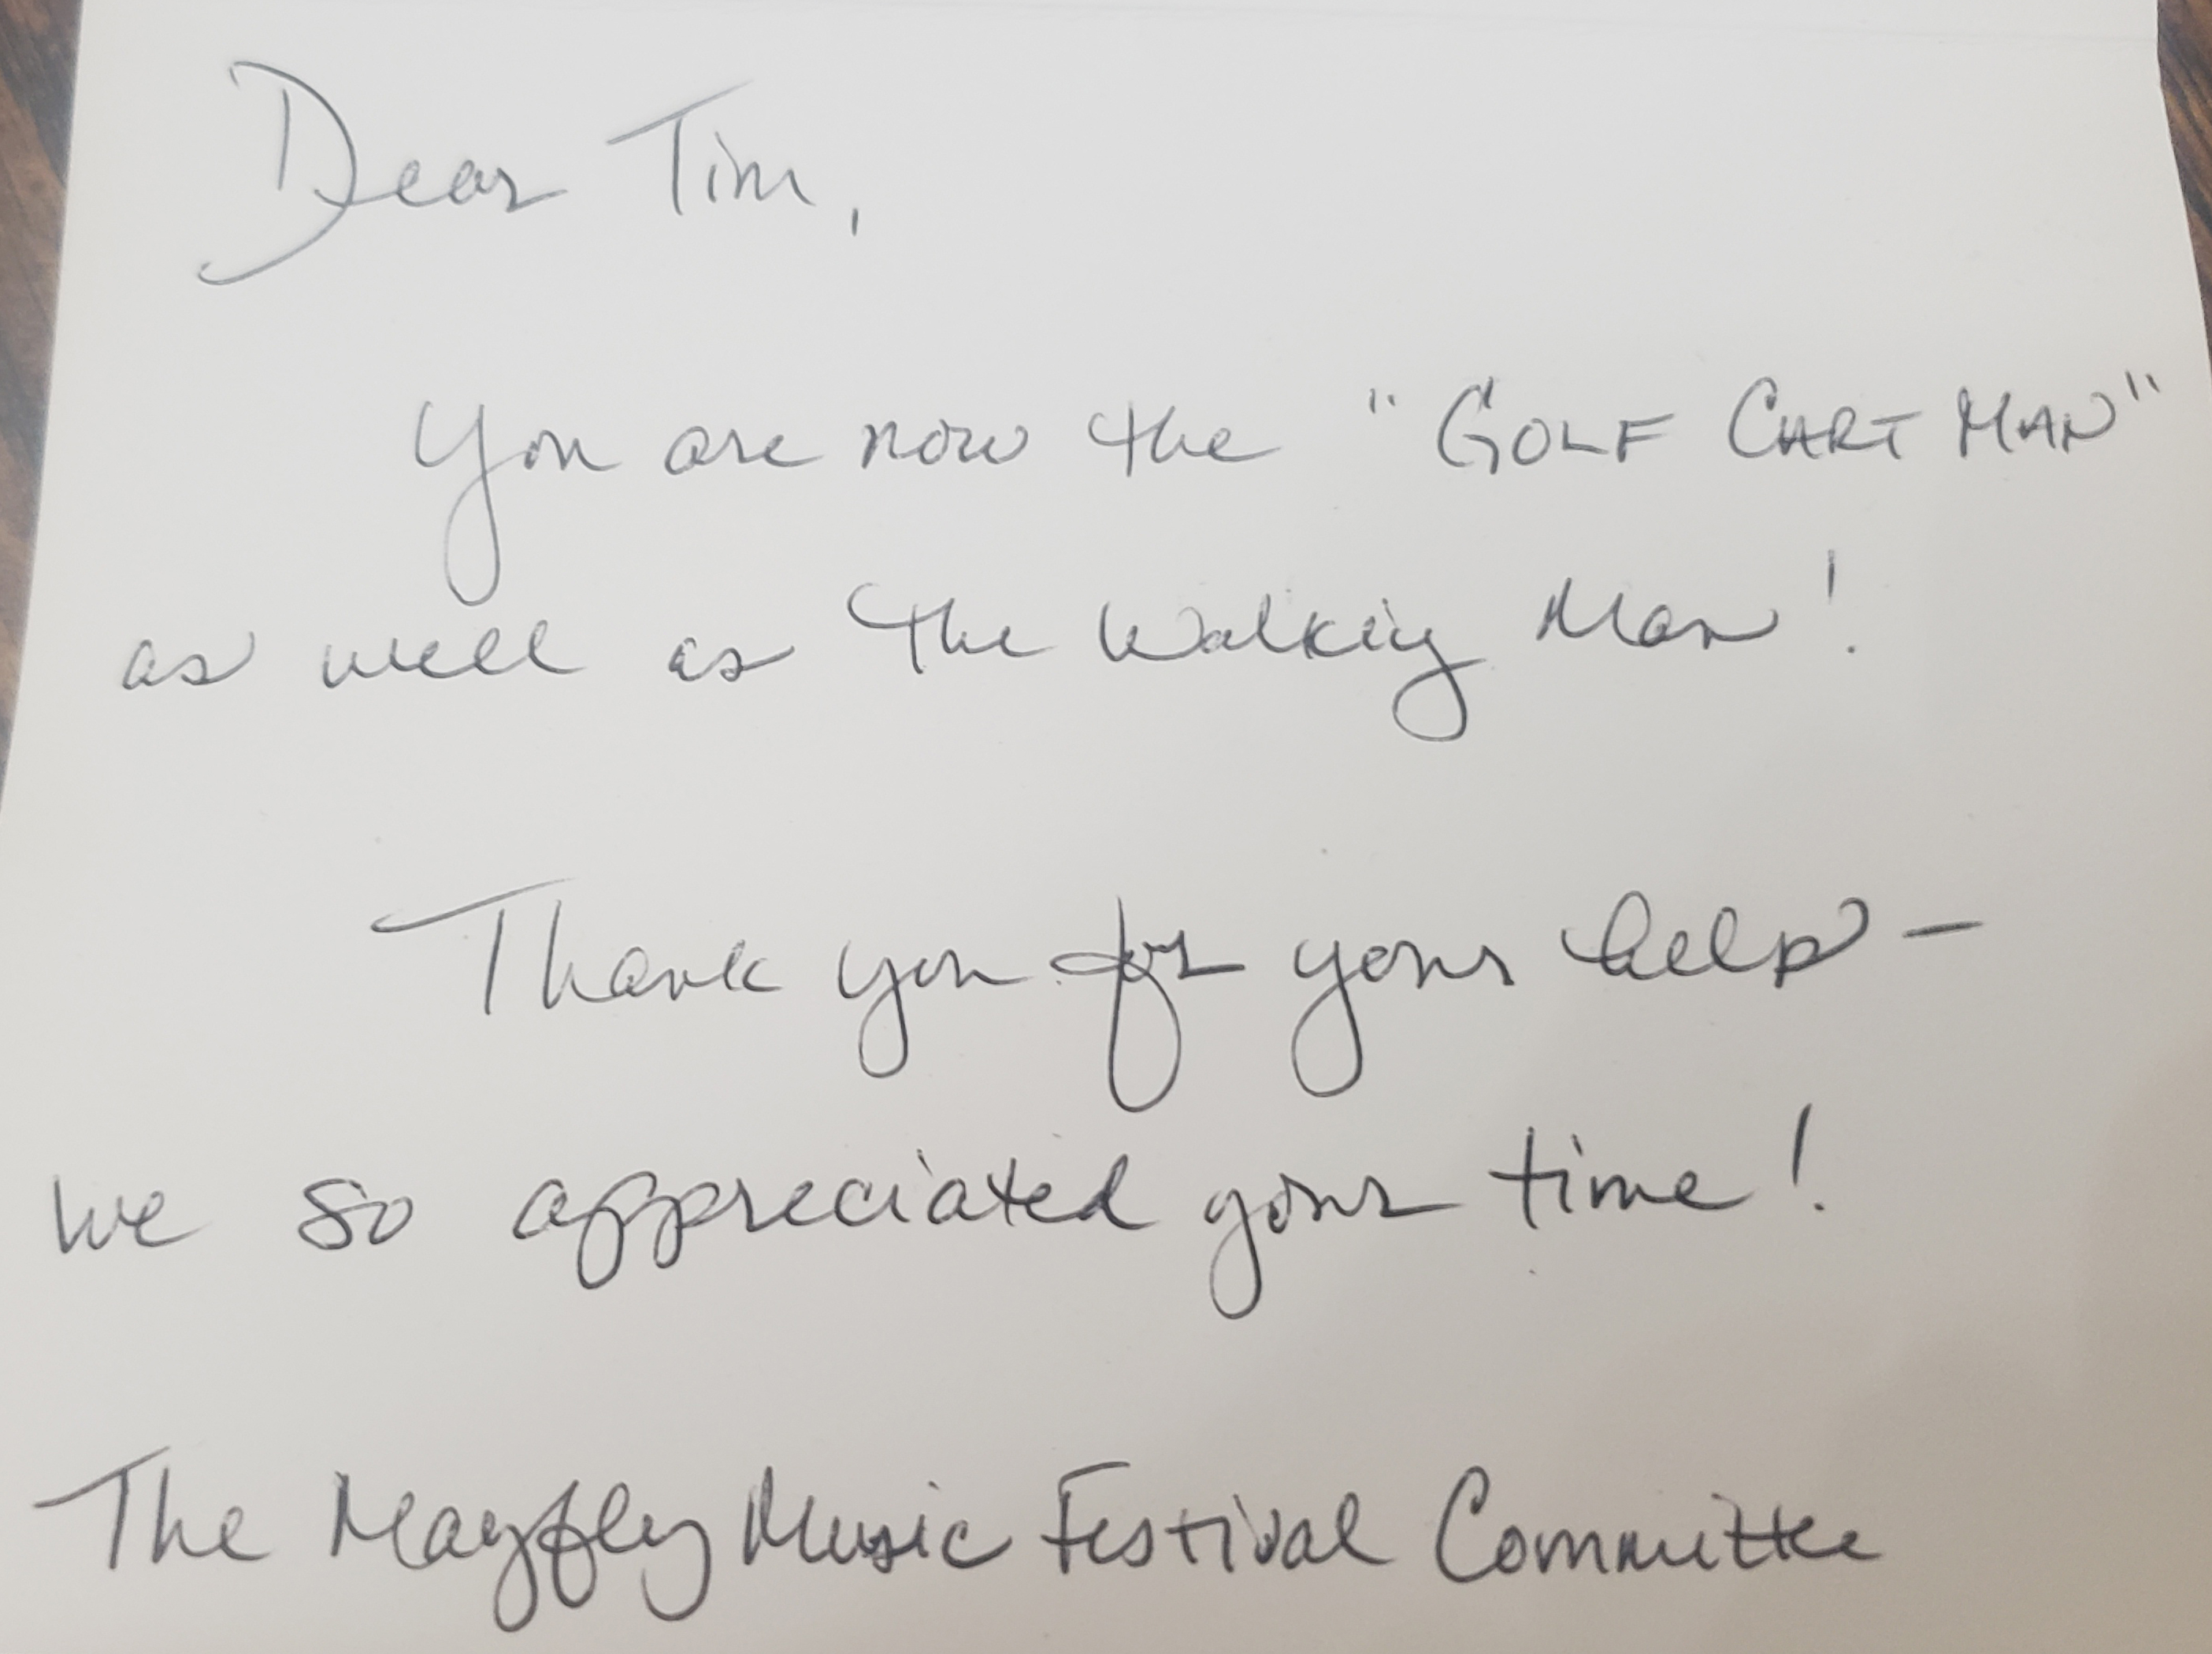 Dear Tim,
You are now the "GOLF CART MAN"
as well as the Walking Man!
Thank you for your help -
we so appreciated your time!
The Mayfly Music Festival Committee